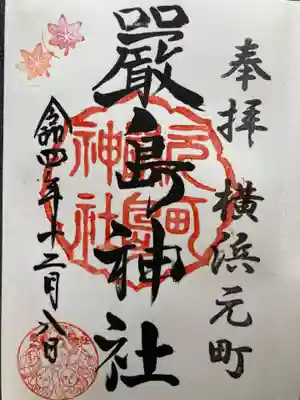 奉拝 横浜元町
嚴島神社
元町嚴島神社
令和四年十二月八日